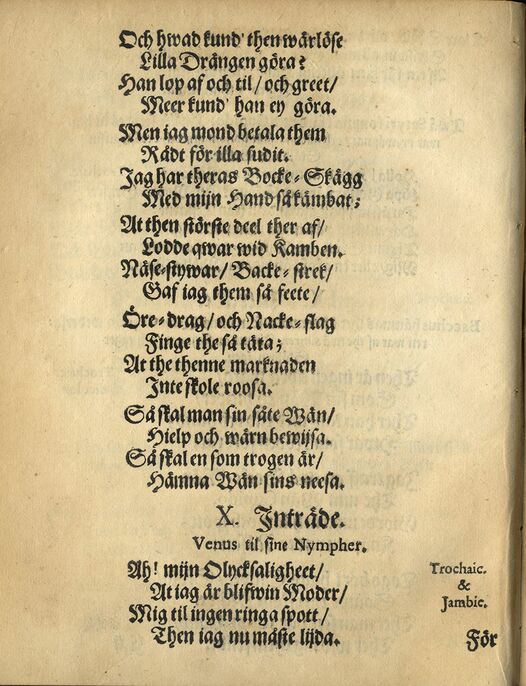 Och hwad kund' then wärlöse
Lilla Drängen göra?
Han lop af och til/ och greet/
Meer kund' han ey göra.
Men iag mond betala them
Rådt för illa sudit.
Jag har theras Bocke-Skägg
Med mijn Hand så kämbat;
At then störste deel ther af/
Lodde qwar wid Kamben.
Näse-stywar/ Backe-strek/
Gaf iag them så feete/
Öre-drag/ och Nacke-slag
Finge the så täta;
At the thenne marknaden
Inte skole roosa.
Så skal man sin säte Wän/
Hielp och wärn bewijsa.
Så skal en som trogen är/
Hämna Wän sins neesa.
X. Inträde.
Venus til sine Nympher.
Ah! mijn Olycksaligheet/
At iag är blifwin Moder/
Mig til ingen ringa spott/
Then iag nu måste lijda.
Trochaic.
&
Jambic.
För